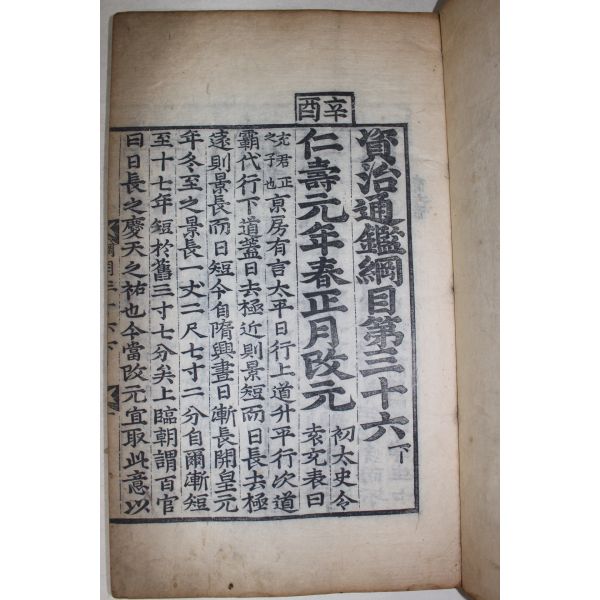 辛酉
資治通鑑綱目第三十六下
仁壽元年春正月改元
初太史令
袁充表曰
充君正
之子也
京房有言太平日行上道升平行次道
霸代行下道蓋日去極近則景短而日長去極
遠則景長而日短今自隋興晝日漸長開皇元
年冬至之景長一丈二尺七寸二分自爾漸短
至十七年短於舊三寸七分矣上臨朝謂百官
曰日長之慶天之祐也今當改元宜取此意以
綱目三十六下